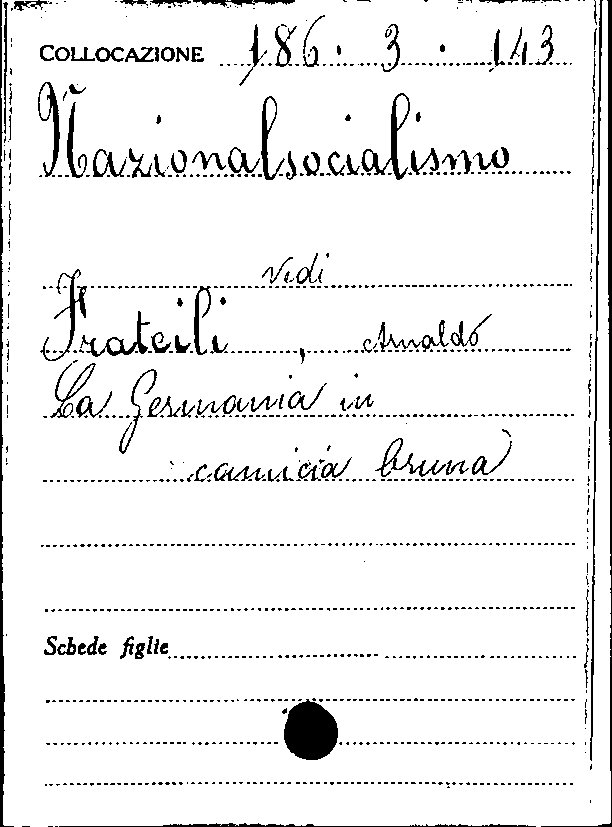 COLLOCAZIONE 186. 3. 143
Nazionalsocialismo
vedi
Frateili, Arnaldo
La Germania in
camicia bruna
Schede figlie